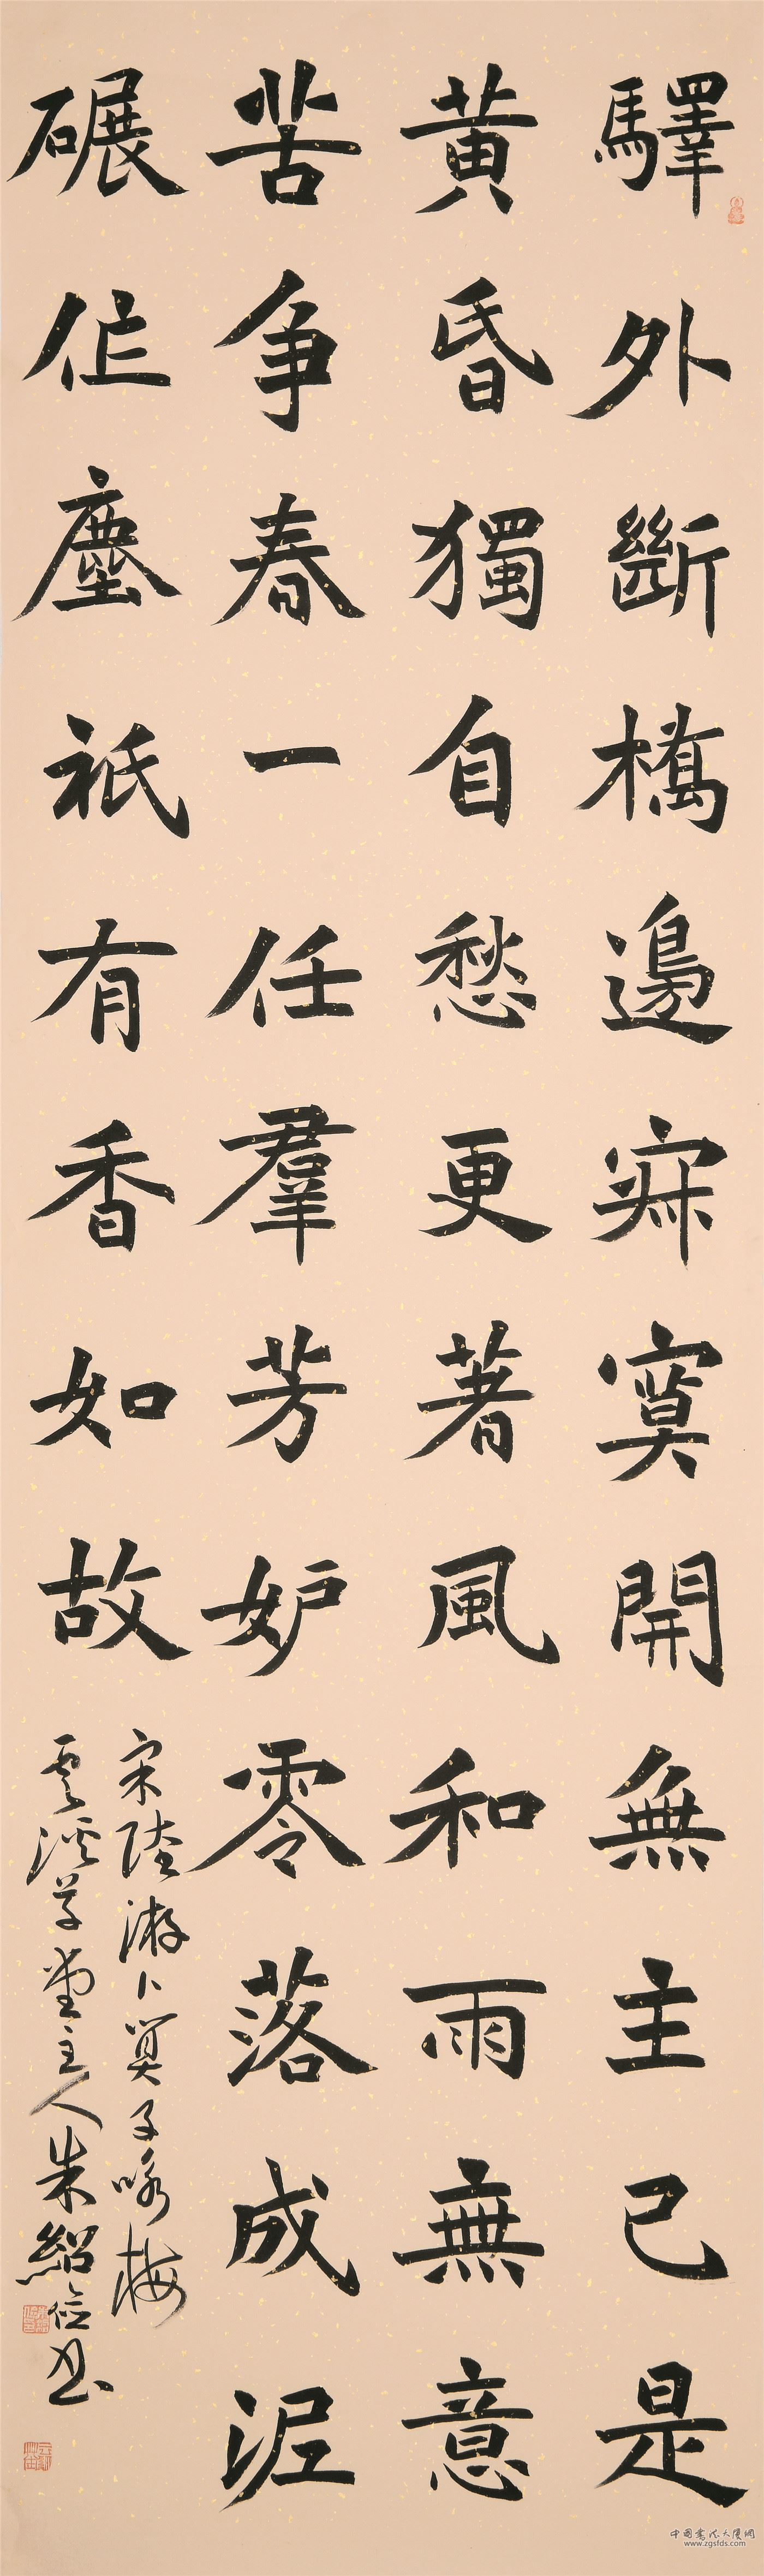 驛外斷橋邊寂寞開無主已是
黃昏獨自愁更著風和雨無意
苦争春一任羣芳妒零落成泥
碾作塵祇有香如故
宋陸游卜算子咏梅
雲溪草堂主人朱紹俭书
中國書法大廈網
www.zgsfds.com